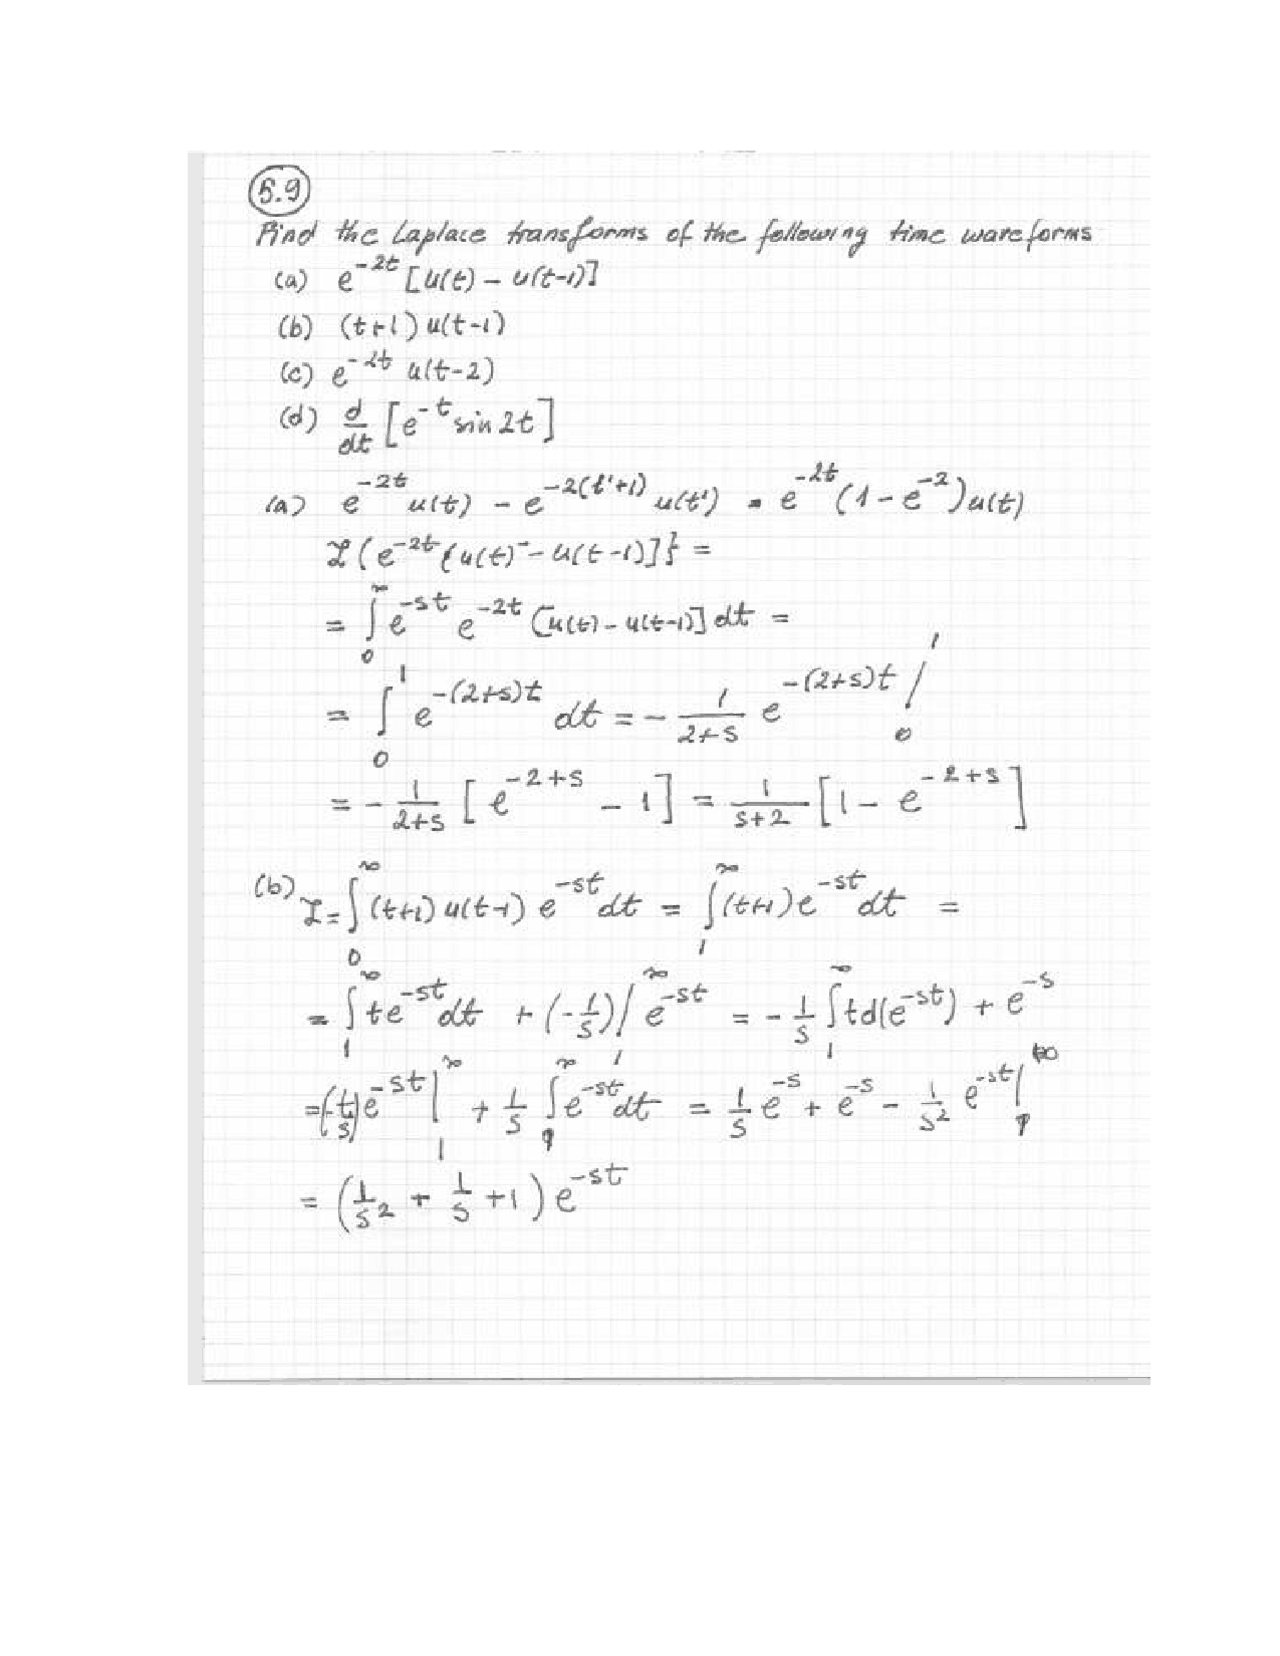 5.9
Find the Laplace transforms of the following time waveforms
(a) e^{-2t} [u(t) - u(t-1)]
(b) (t+1) u(t-1)
(c) e^{-2t} u(t-2)
(d) d/dt [e^{-t} sin 2t]
(a) e^{-2t} u(t) - e^{-2(t'+1)} u(t') = e^{-2t} (1 - e^{-2}) u(t)
ℒ{e^{-2t} [u(t) - u(t-1)]} =
= ∫_0^∞ e^{-st} e^{-2t} [u(t) - u(t-1)] dt =
= ∫_0^1 e^{-(2+s)t} dt = - 1/(2+s) e^{-(2+s)t} |_0^1
= - 1/(2+s) [e^{-2+s} - 1] = 1/(s+2) [1 - e^{-2+s}]
(b) ℒ = ∫_0^∞ (t+1) u(t-1) e^{-st} dt = ∫_1^∞ (t+1) e^{-st} dt =
= ∫_1^∞ t e^{-st} dt + (-1/s) |_1^∞ e^{-st} = - 1/s ∫_1^∞ t d(e^{-st}) + e^{-s}
= (-t/s) e^{-st} |_1^∞ + 1/s ∫_1^∞ e^{-st} dt = 1/s e^{-s} + e^{-s} - 1/s^2 e^{-st} |_1^∞
= (1/s^2 + 1/s + 1) e^{-st}